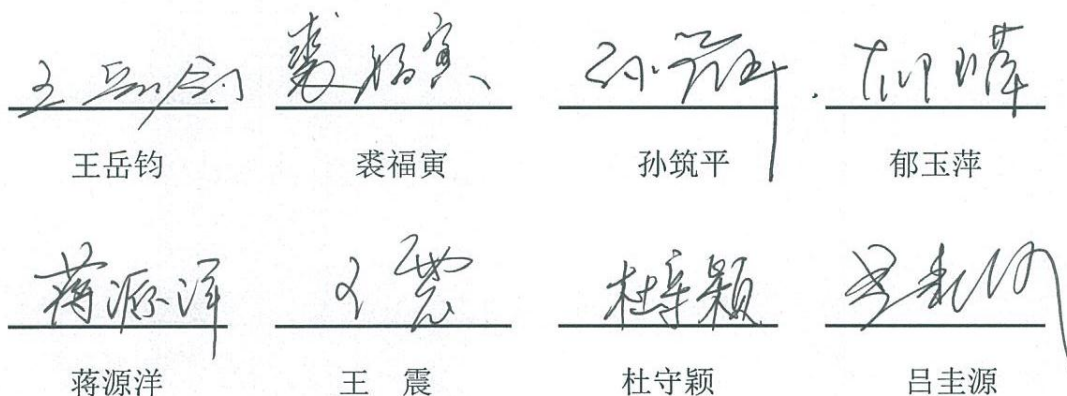 王岳钧 裘福寅 孙筑平 郁玉萍
王岳钧 裘福寅 孙筑平 郁玉萍
蒋源洋 王震 杜守颖 吕圭源
蒋源洋 王 震 杜守颖 吕圭源